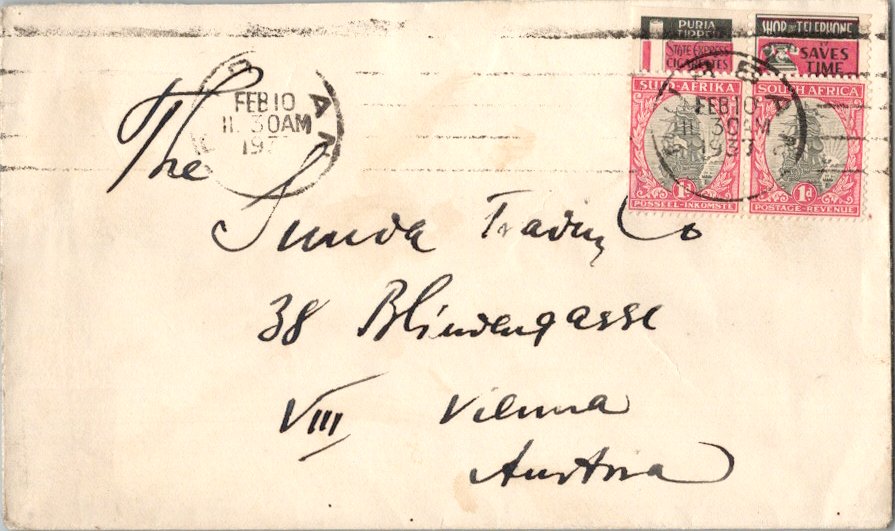 PURIA
TIPPED
STATE EXPRESS
CIGARETTES
SHOP BY TELEPHONE
IT SAVES
TIME
SUID-AFRIKA
SOUTH AFRICA
1d
1d
POSSEEL-INKOMSTE
POSTAGE-REVENUE
FEB 10
11 30AM
FEB 10
11 30AM
1933
The
Sunda Trading Co
38 Blindengasse
VIII Vienna
Austria